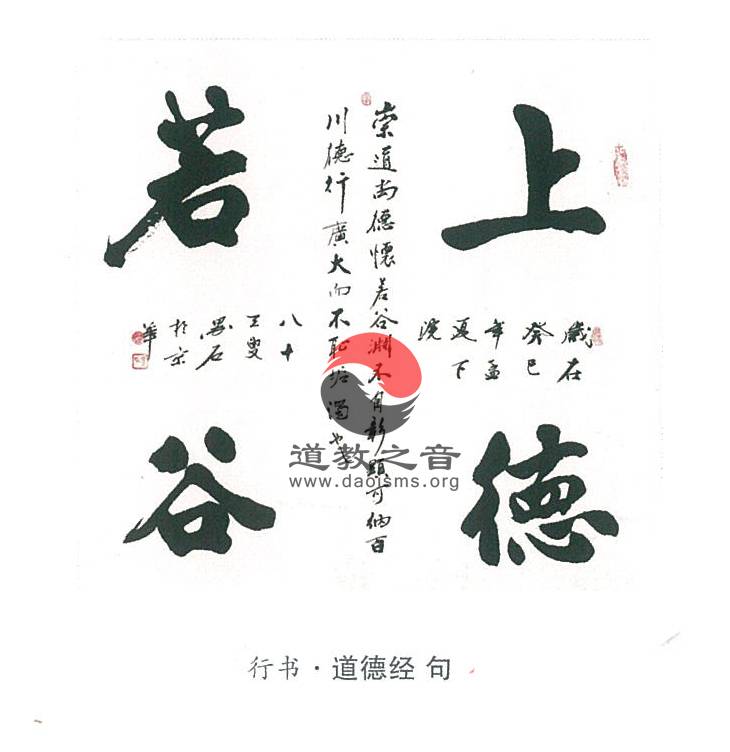 上德
若谷
崇道尚德懷若谷淵不自彰顯可納百
川德行廣大而不恥垢濁也
歲在
癸巳
年孟
夏下
浣
八十
王叟
愚石
於京
華
道教之音
www.daoisms.org
行书·道德经 句